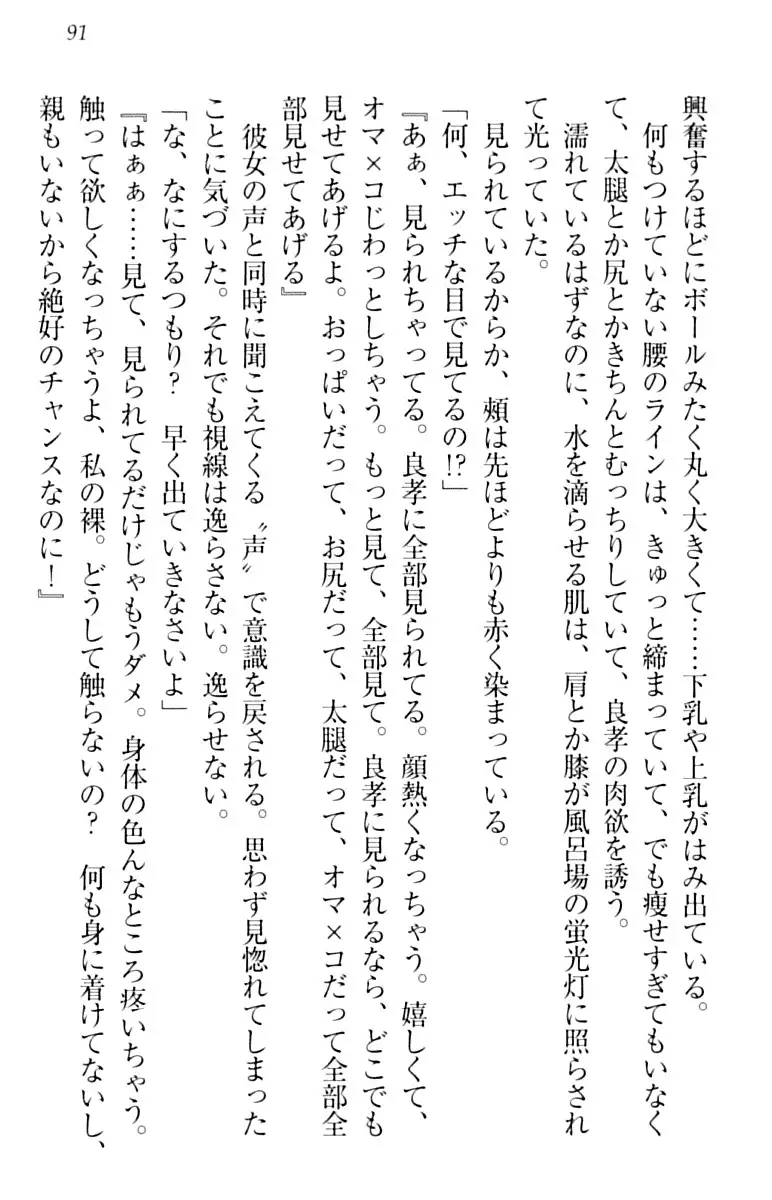 91
興奮するほどにボールみたく丸く大きくて……下乳や上乳がはみ出ている。
何もつけていない腰のラインは、きゅっと締まっていて、でも痩せすぎてもいなく
て、太腿とか尻とかきちんとむっちりしていて、良孝の肉欲を誘う。
濡れているはずなのに、水を滴らせる肌は、肩とか膝が風呂場の蛍光灯に照らされ
て光っていた。
見られているからか、頬は先ほどよりも赤く染まっている。
「何、エッチな目で見てるの!?」
『あぁ、見られちゃってる。良孝に全部見られてる。顔熱くなっちゃう。嬉しくて、
オマ×コじわっとしちゃう。もっと見て、全部見て。良孝に見られるなら、どこでも
見せてあげるよ。おっぱいだって、お尻だって、太腿だって、オマ×コだって全部全
部見せてあげる』
彼女の声と同時に聞こえてくる〝声〟で意識を戻される。思わず見惚れてしまった
ことに気づいた。それでも視線は逸らさない。逸らせない。
「な、なにするつもり？　早く出ていきなさいよ」
『はぁぁ……見て、見られてるだけじゃもうダメ。身体の色んなところ疼いちゃう。
触って欲しくなっちゃうよ、私の裸。どうして触らないの？　何も身に着けてないし、
親もいないから絶好のチャンスなのに！』